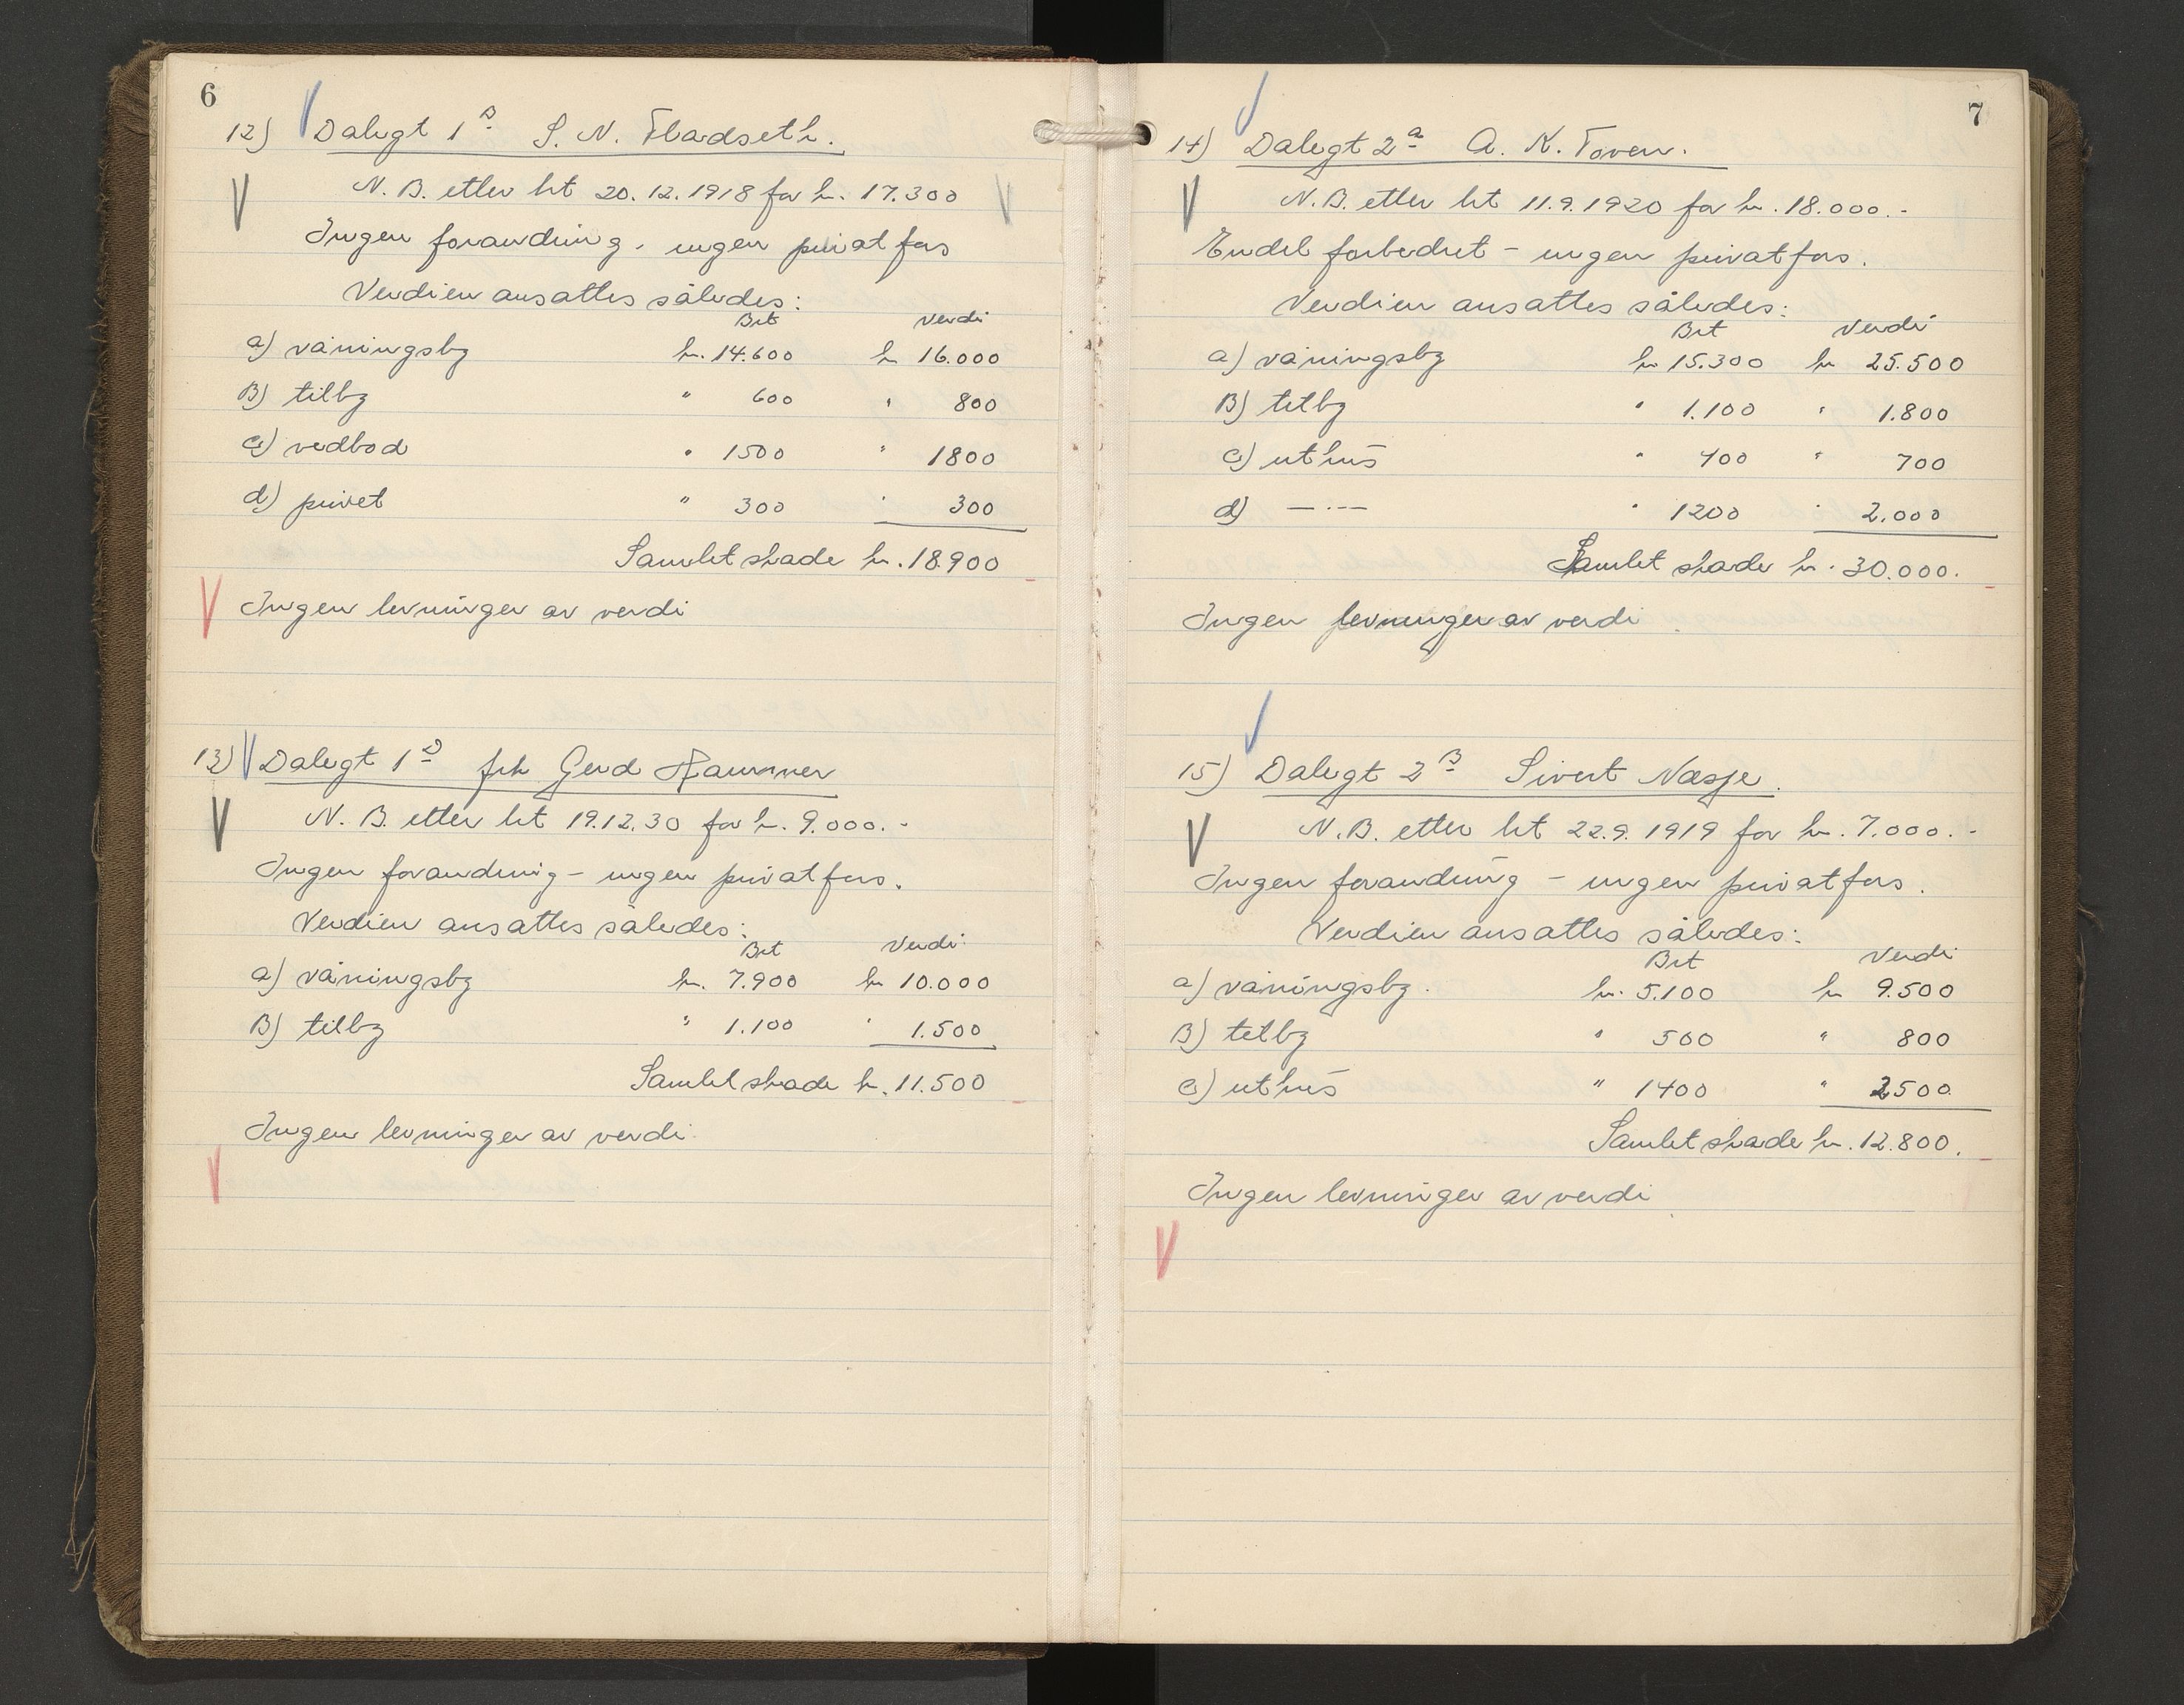 6
12) Dalegt 1 B S. N. Fladseth.
N. B. etter tkt 20.12.1918 for kr. 17.300
Ingen forandring. ingen privat fors
Verdien ansattes således:
Brt Verdi
a) våningsbg kr. 14.600 kr 16.000
B) tilbg " 600 " 800
c) vedbod " 1500 " 1800
d) privet " 300 " 300
Samlet skade kr. 18.900
Ingen levninger av verdi
13) Dalegt 1 D frk Gerd Hammer
N. B. etter tkt 19.12.30 for kr. 9.000.-
Ingen forandring - ingen privat fors.
Verdien ansattes således:
Brt Verdi
a) våningsbg kr. 7.900 kr 10.000
B) tilbg " 1.100 " 1.500
Samlet skade kr. 11.500
Ingen levninger av verdi
7
14) Dalegt 2 a A. K. Toven.
N. B. etter tkt 11.9.1920 for kr. 18.000.-
Endel forbedret - ingen privat fors.
Verdien ansattes således:
Brt Verdi
a) våningsbg kr 15.300 kr 25.500
B) tilbg " 1.100 " 1.800
c) uthus " 400 " 700
d) —·— " 1200 " 2.000
Samlet skade kr. 30.000.
Ingen levninger av verdi
15) Dalegt 2 B Sivert Næsje.
N. B. etter tkt 22.9.1919 for kr. 7.000.-
Ingen forandring - ingen privat fors.
Verdien ansattes således:
Brt Verdi
a) våningsbg. kr. 5.100 kr 9.500
B) tilbg " 500 " 800
c) uthus " 1400 " 2500
Samlet skade kr. 12.800.
Ingen levninger av verdi